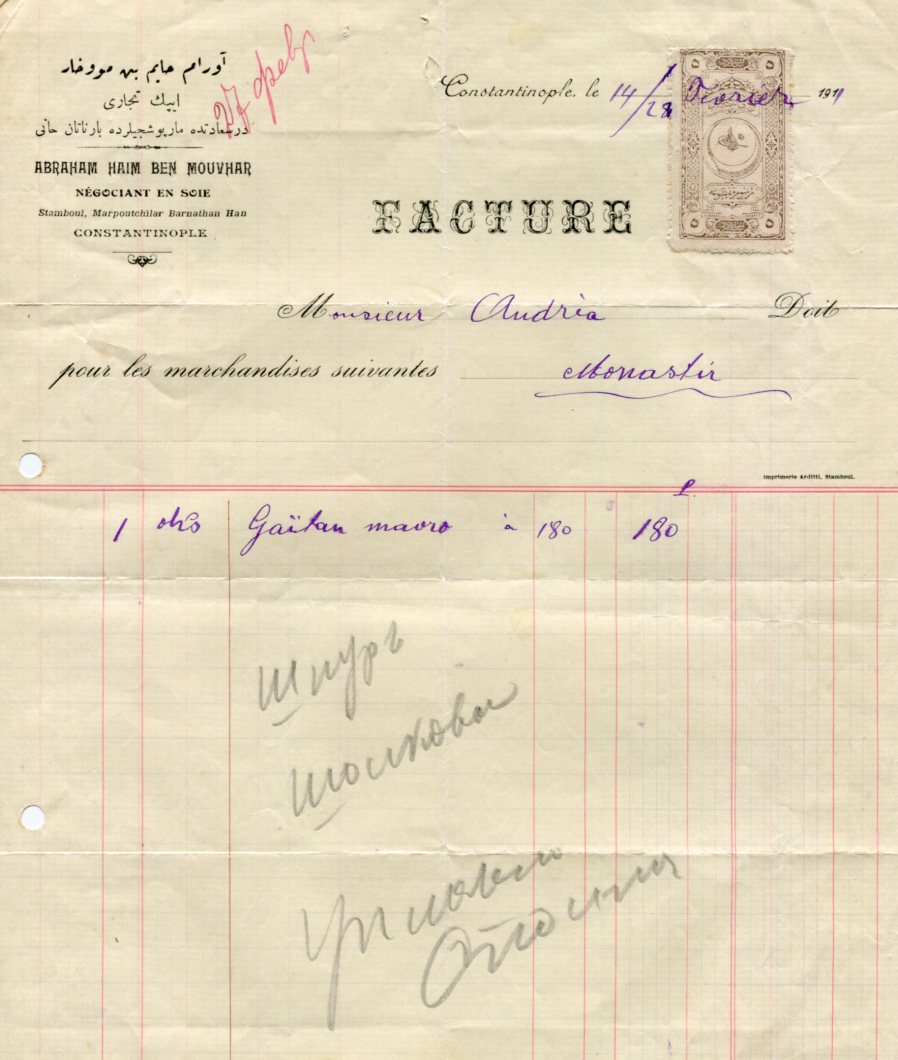 آورام حايم بن موو خار
ايپك تجارى
درسعادتده مارپوشجيلرده بارناتان حانى
27 февр
ABRAHAM HAIM BEN MOUVHAR
NÉGOCIANT EN SOIE
Stamboul, Marpoutchilar Barnathan Han
CONSTANTINOPLE
Constantinople, le 14/28 Février 1911
٥ ٥
٥ ٥
FACTURE
Monsieur Andréa Doit
pour les marchandises suivantes Monastir
Imprimerie Arditti, Stamboul.
P.
1 oks Gaïtan mavro à 180 180
Шнуръ
шолковы